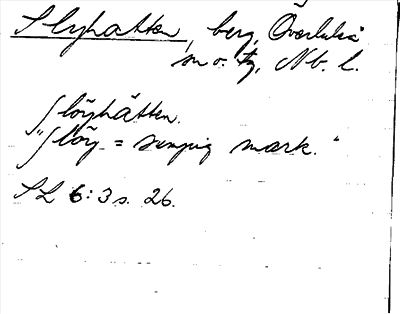 Slyhatten, berg, Överluleå
sn o. tg, Nb. l.
ʃlöyhätten.
"ʃlöy = sumpig mark."
SL 6:3 s. 26.